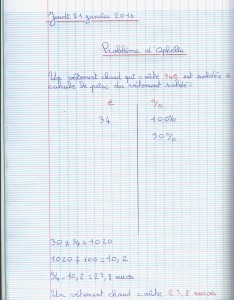 Jeudi 21 janvier 2016
Problème d'Ophélie
Un vêtement chaud qui coûte 34€ est soldé à
calcule de prix du vêtement soldé :
€ %
34 100%
30%
30 x 34 = 1020
1020 ÷ 100 = 10,2
34 - 10,2 = 23,8 euros
Un vêtement chaud coûte 23,8 euros